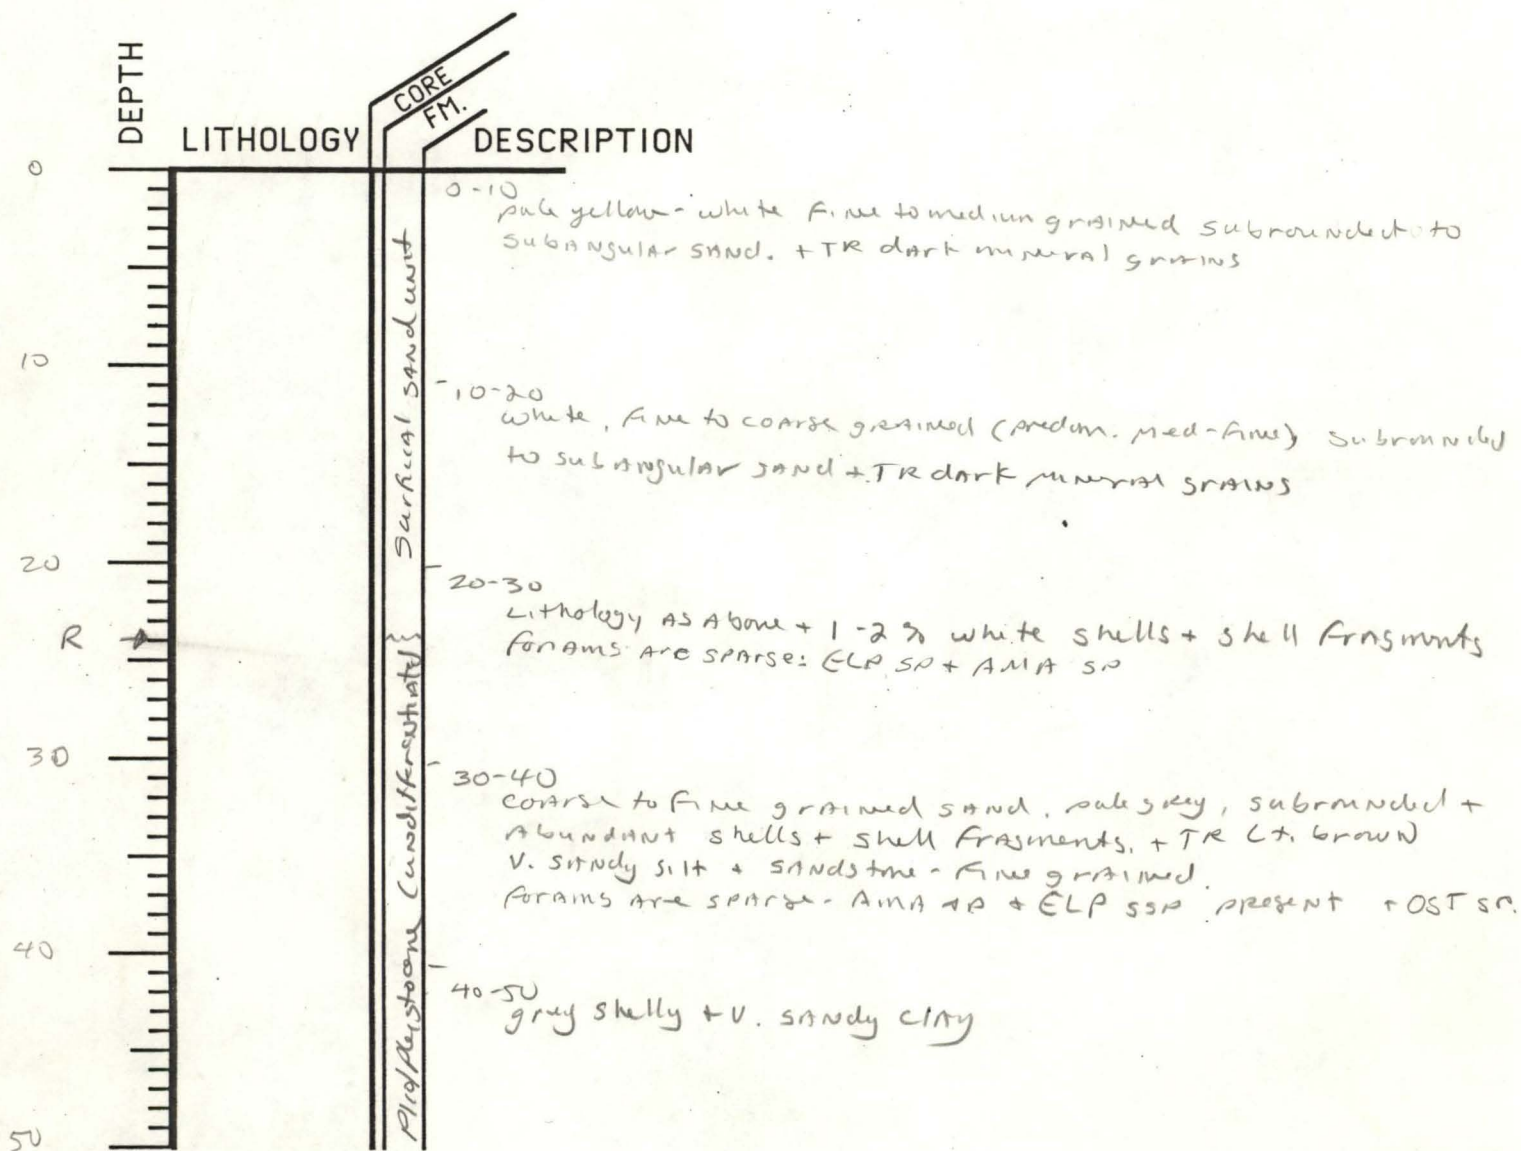 DEPTH
LITHOLOGY
CORE
FM.
DESCRIPTION
0
10
20
R
30
40
50
Surficial SAND unit
Plio/Pleystocene (undifferentiated)
0-10
pale yellow-white fine to medium grained subrounded to
SubANgulAr SANd. + TR dark mineral grAINS
10-20
white, fine to coarse grained (predom. med-fine) subrounded
to subANgulAr SANd + TR dArk mineral grAINS
20-30
Lithology AS Above + 1-2% white shells + shell fragments
forAms Are spArse: ELP SP + AMA SP
30-40
coArse to fine grAined sAnd, pale grey, subrounded +
Abundant shells + shell fragments, + TR Lt. brown
V. SANdy silt + SANdstone - fine grAined.
forAms Are spArse - AMA SP + ELP SSP present + OST SP.
40-50
grey shelly + V. SANdy clAy